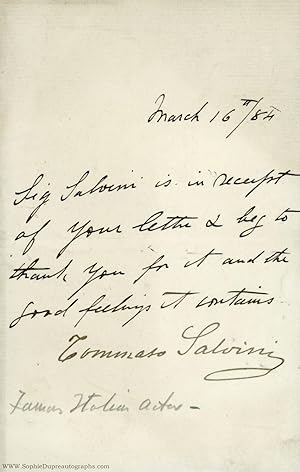 March 16th/84
Sig Salvini is in receipt
of your letter & beg to
thank you for it and the
good feelings it contains
Tommaso Salvini
Famous Italian Actor -
www.SophieDupreautographs.com